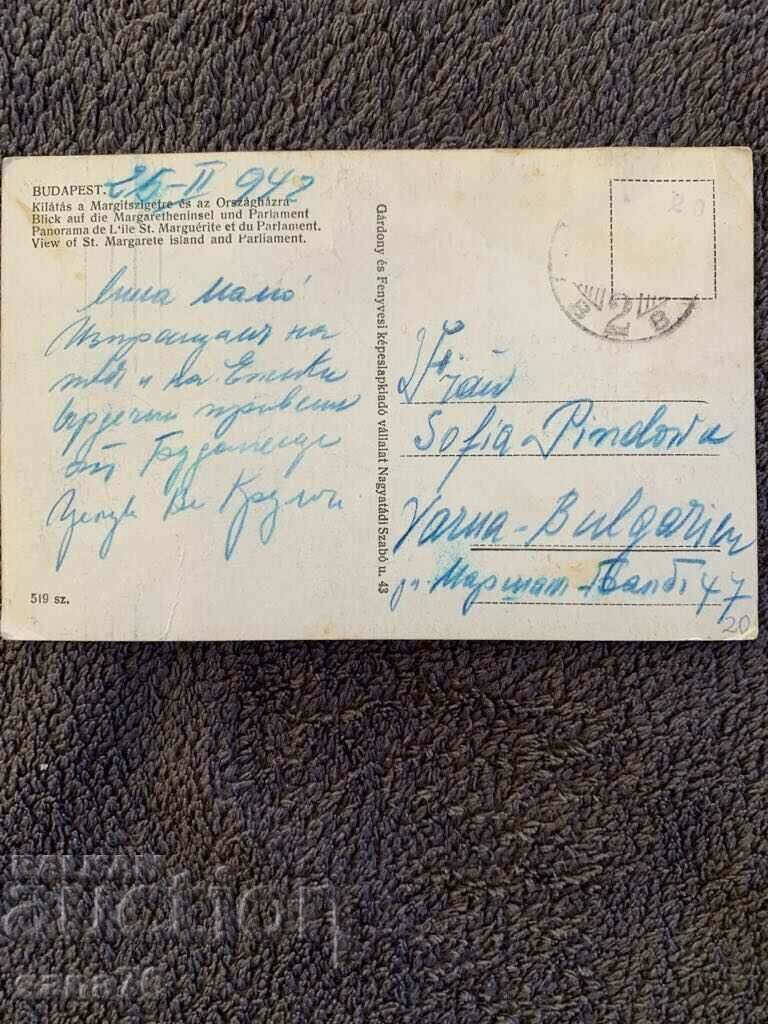 BUDAPEST. 25-II 942
Kilátás a Margitszigetre és az Országházra
Blick auf die Margaretheninsel und Parlament
Panorama de L'ile St. Marguérite et du Parlament.
View of St. Margarete island and Parliament.
мамо
Изпращамъ на
тебъ и на
сърдечни привети
отъ Будапеща
519 sz.
Gárdony és Fenyvesi képeslapkiadó vállalat Nagyatádi Szabó u. 43
20
Frau
Sofia Pindowa
Varna-Bulgarien
ул. 47
20
BALKAN
auction